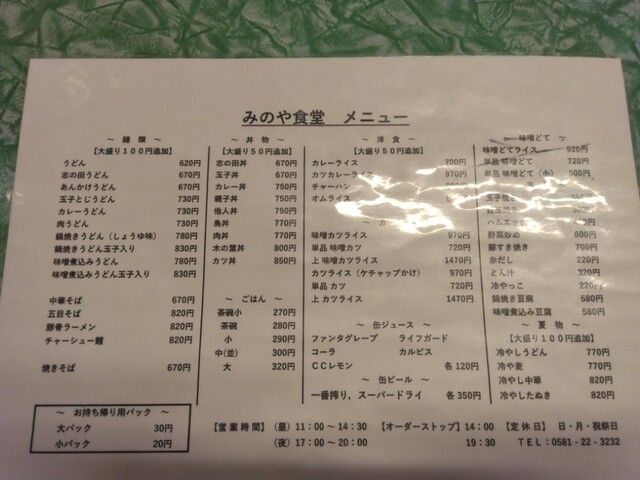 みのや食堂 メニュー
～ 麺 類 ～
【大盛り１００円追加】
うどん 620円
志の田うどん 670円
あんかけうどん 670円
玉子とじうどん 730円
カレーうどん 730円
肉うどん 730円
鍋焼きうどん（しょうゆ味） 780円
鍋焼きうどん玉子入り 830円
味噌煮込みうどん 780円
味噌煮込みうどん玉子入り 830円
中華そば 670円
五目そば 820円
豚骨ラーメン 820円
チャーシュー麺 820円
焼きそば 670円
～ お持ち帰り用パック ～
大パック 30円
小パック 20円
～ 丼 物 ～
【大盛り５０円追加】
志の田丼 670円
玉子丼 670円
カレー丼 750円
親子丼 750円
他人丼 750円
鳥丼 770円
肉丼 770円
木の葉丼 800円
カツ丼 850円
～ ごはん ～
茶碗小 270円
茶碗 280円
小 290円
中(並) 300円
大 320円
～ 洋 食 ～
【大盛り５０円追加】
カレーライス 700円
カツカレーライス 970円
チャーハン
オムライス
～ カ
味噌カツライス 970円
単品 味噌カツ 720円
上 味噌カツライス 1470円
カツライス（ケチャップかけ） 970円
単品 カツ 720円
上 カツライス 1470円
～ 缶ジュース ～
ファンタグレープ ライフガード
コーラ カルピス
ＣＣレモン 各 120円
～ 缶ビール ～
一番搾り，スーパードライ 各 350円
味噌どて ～
味噌どてライス 920円
単品 味噌どて 720円
単品 味噌どて（小） 500円
玉子焼き
ハムエッグ
野菜炒め 600円
豚すき焼き 700円
赤だし 220円
とん汁 320円
冷やっこ 220円
鍋焼き豆腐 580円
味噌煮込み豆腐 580円
～ 夏 物 ～
【大盛り１００円追加】
冷やしうどん 770円
冷や麦 770円
冷やし中華 820円
冷やしたぬき 820円
【営業時間】（昼）11：00～14：30 【オーダーストップ】14：00 【定休日】 日・月・祝祭日
（夜）17：00～20：00 19：30 ＴＥＬ：0581－22－3232